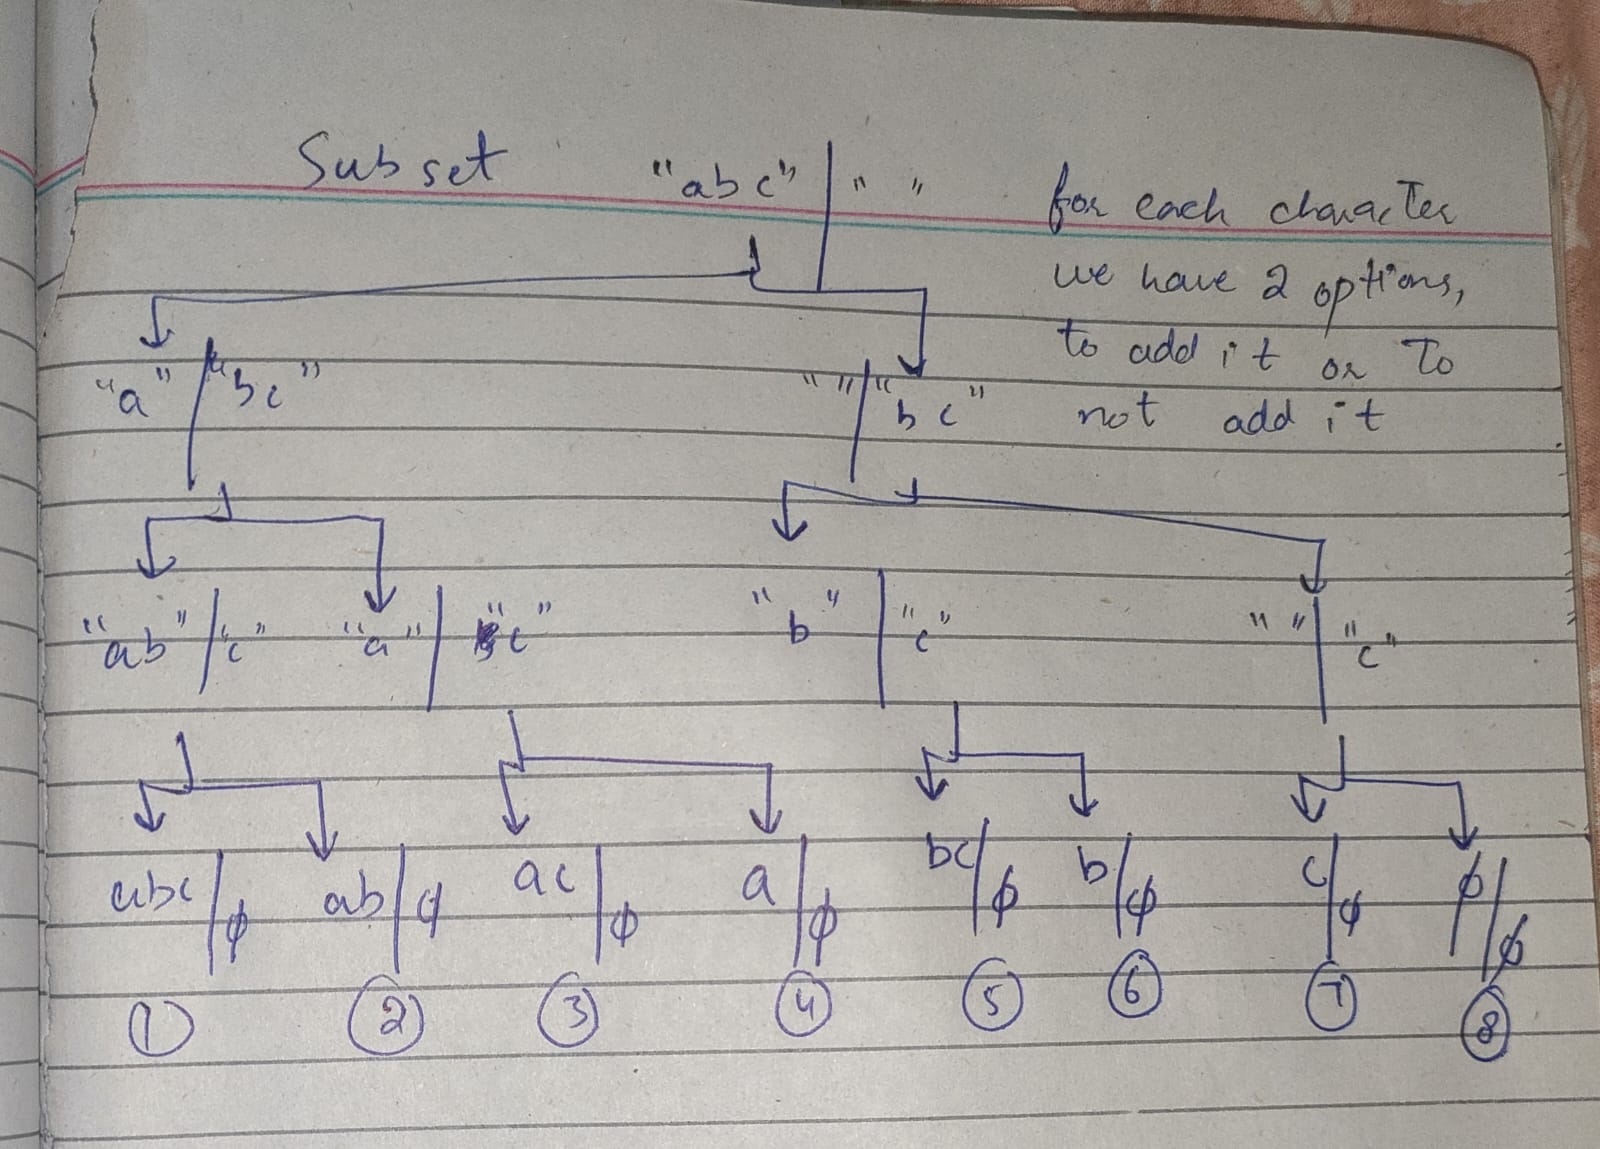 Subset "abc" | " "
for each character
we have 2 options,
to add it or To
not add it
"a" | "bc" " " | "bc"
"ab" | "c" "a" | "c" "b" | "c" " " | "c"
abc | ϕ ab | ϕ ac | ϕ a | ϕ bc | ϕ b | ϕ c | ϕ ϕ | ϕ
① ② ③ ④ ⑤ ⑥ ⑦ ⑧